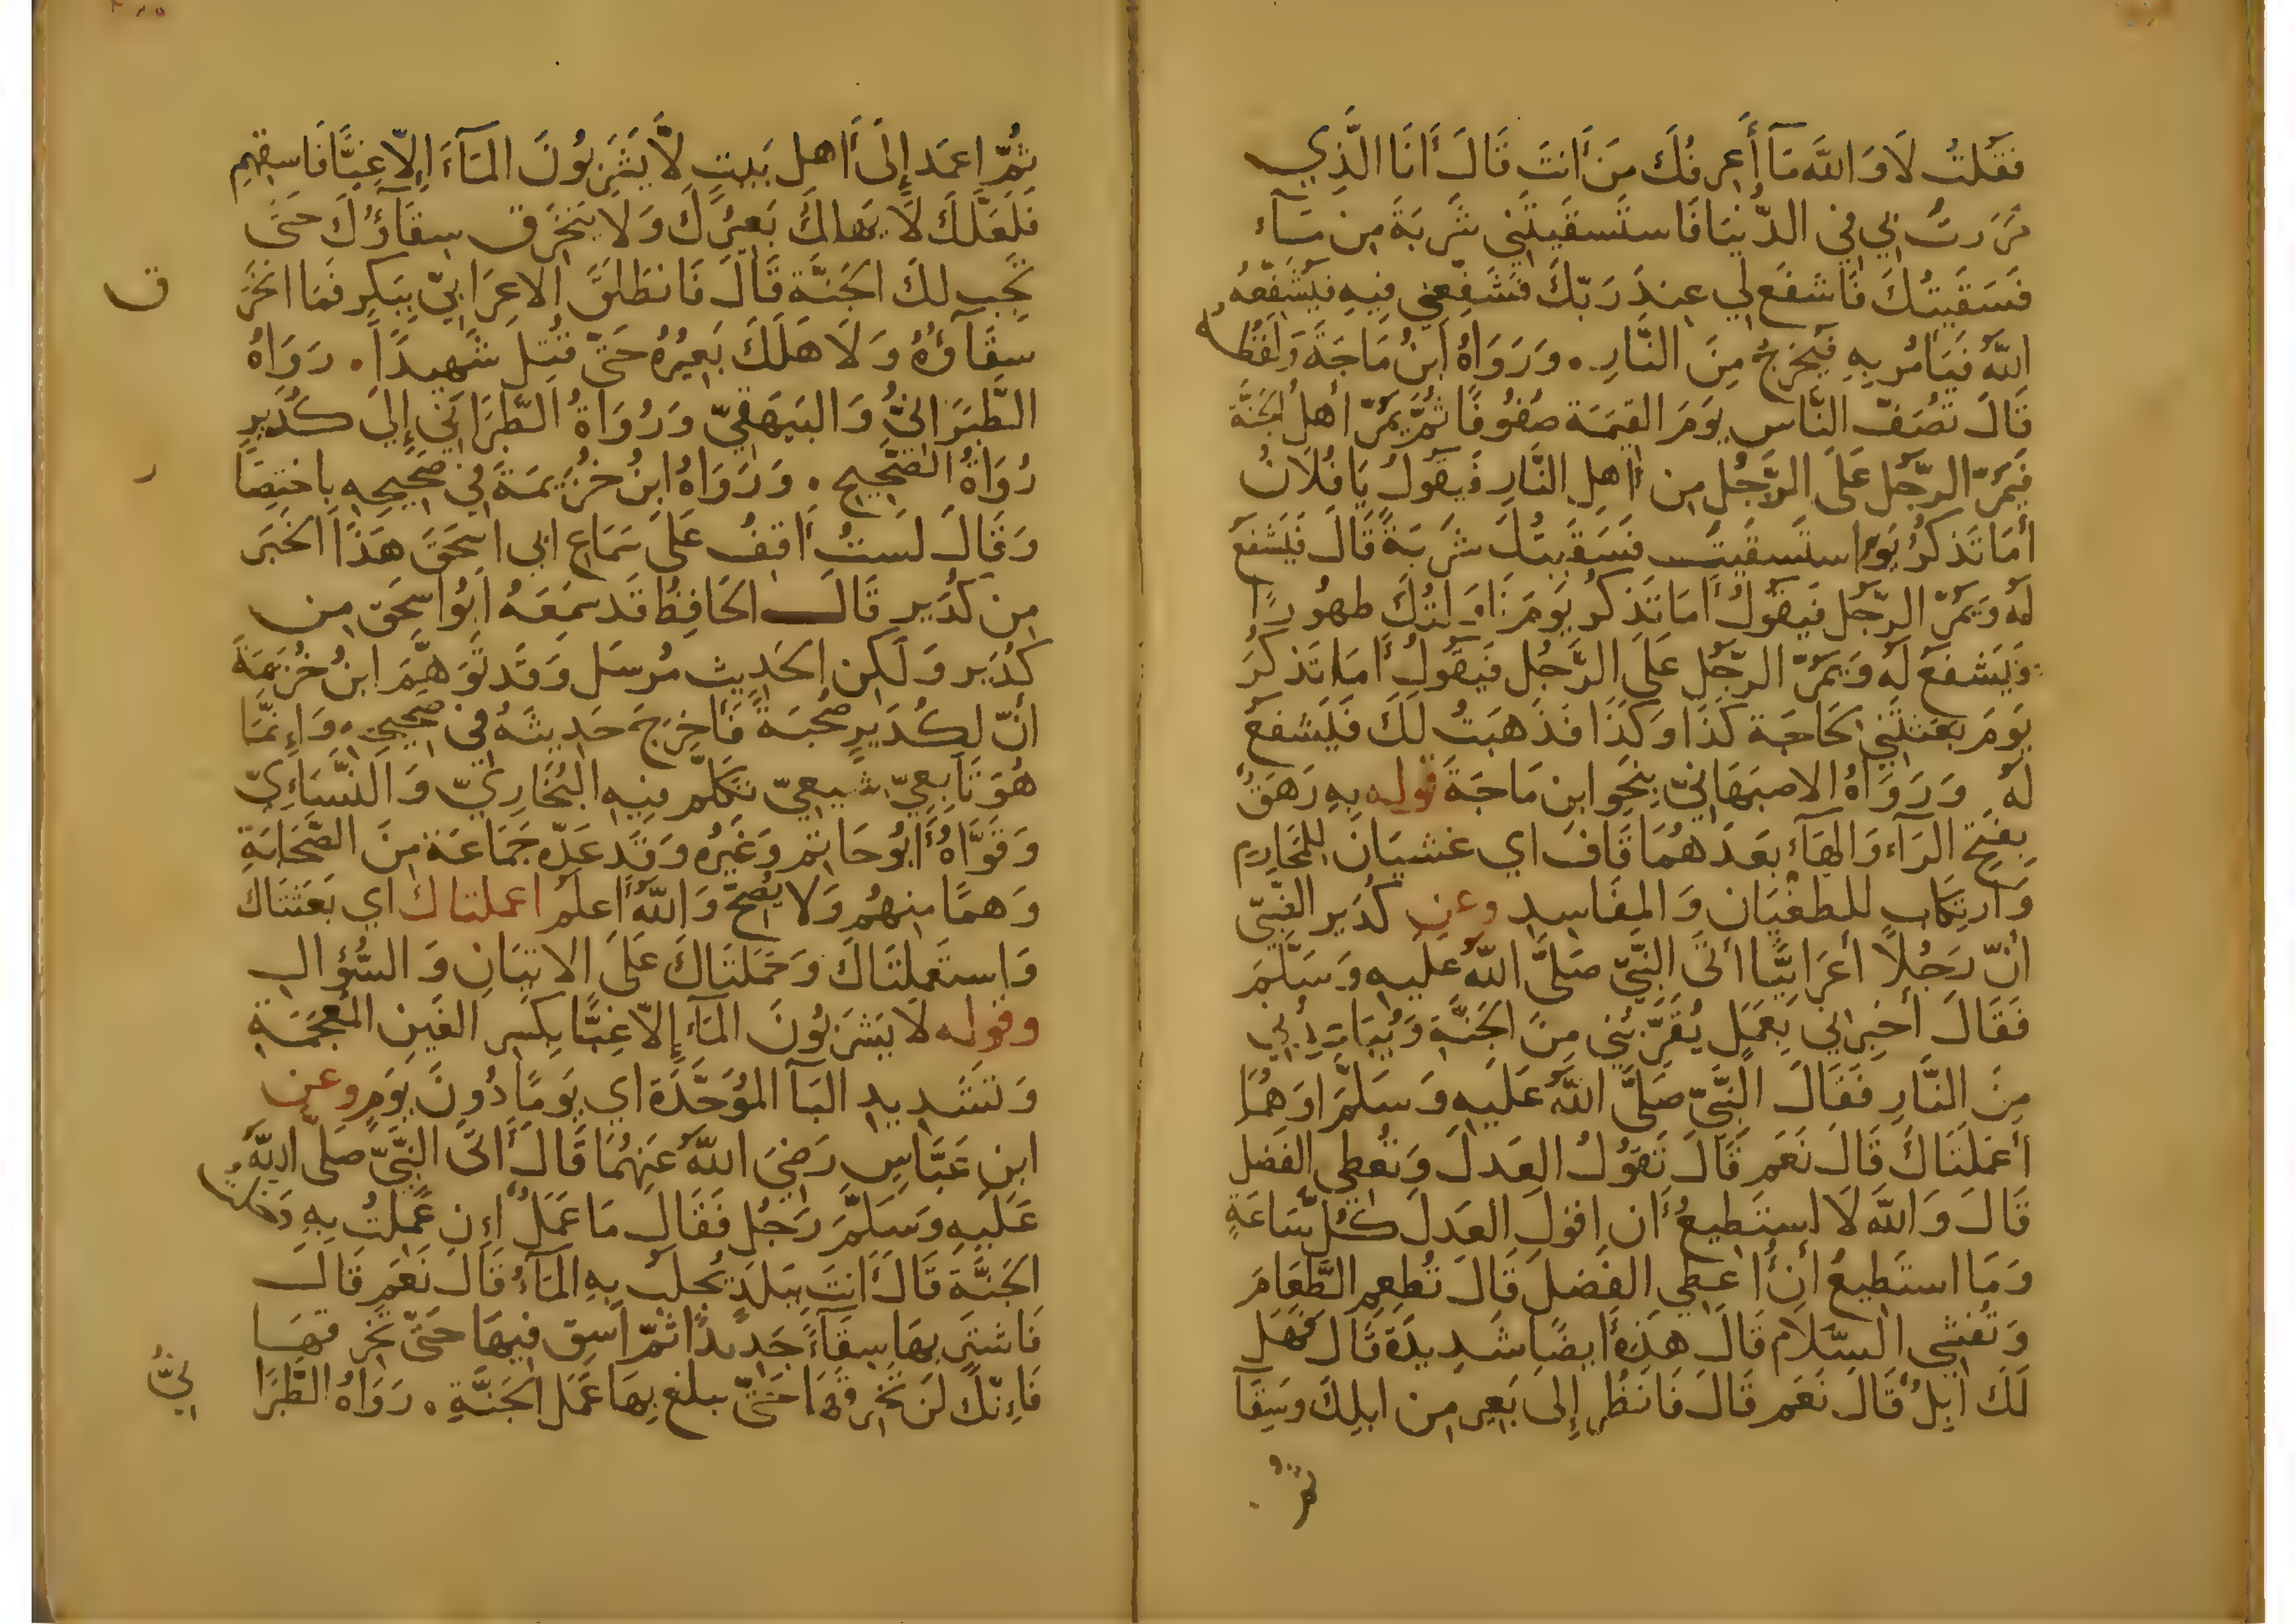 فَقُلتُ لَا وَاللَّهِ مَا أَعرِفُكَ مَن أَنتَ قَالَ أَنَا الَّذِي
مَرَرتُ بِي فِي الدُّنيَا فَاستَسقَيتَنِي شَربَةً مِن مَآء
فَسَقَيتُكَ فَاشفَع لِي عِندَ رَبِّكَ فَشَفِّعنِي فِيهِ فَيُشَفِّعُهُ
اللّٰهُ فَيَأمُر بِهِ فَيَخرُجُ مِنَ النَّارِ . وَرَوَاهُ ابنُ مَاجَةَ وَلَفظُهُ
قَالَ تُصَفّ النَّاس يَومَ القِيمَة صفُوفًا ثُمَّ يَمُرّ أَهلُ الجَنَّةِ
فَيَمُرّ الرَّجُل عَلَى الرَّجُل مِن أَهلِ النَّارِ فَيَقُولُ يَا فُلَانُ
أَمَا تَذكُرُ يَومَ استَسقَيتَ فَسَقَيتُكَ شَربَةً قَالَ فَيَشفَعُ
لَهُ وَيَمُرّ الرَّجُل فَيَقُولُ أَمَا تَذكُر يَومَ نَاوَلتُكَ طَهُورًا
فَيَشفَعُ لَهُ وَيَمُرّ الرَّجُل عَلَى الرَّجُل فَيَقُولُ أَمَا تَذكُرَ
يَومَ بَعَثتَنِي لحَاجَة كَذَا وَكَذَا فَذَهَبتُ لَكَ فَيَشفَعُ
لَهُ وَرَوَاهُ الاصبَهَانِيّ بِنَحوِ ابنِ مَاجَةَ قوله بِهِ رَهَقٌ
بِفَتحِ الرَآء وَالهَآء بَعدَهُمَا قَاف اي غشيَان لِلمَحَارِم
وَارتِكَاب لِلطغيَان وَالمفَاسِد وعن كُدَير الضَّبِّيّ
أَنّ رَجُلًا أَعرَابِيًّا أَتَى النَّبِيّ صَلَّى اللّٰهُ عَلَيهِ وَسَلَّمَ
فَقَالَ أَخبِرنِي بِعَمَلٍ يُقَرِّبُنِي مِنَ الجَنَّةِ وَيُبَاعِدُنِي
مِنَ النَّارِ فَقَالَ النَّبِيّ صَلَّى اللّٰهُ عَلَيهِ وَسَلَّمَ اوَهُمَا
أَعمَلَتَاكَ قَالَ نَعَم قَالَ تَقُولُ العَدلَ وَتُعطِي الفَضل
قَالَ وَاللّٰهِ لَا استَطِيعُ أَن اقولَ العَدلَ كُلَّ سَاعَةٍ
وَمَا استَطِيعُ أَن أُعطِي الفَضلَ قَالَ تُطعِم الطَّعَامَ
وَتُفشِي السَّلَام قَالَ هَذِهِ أَيضًا شَدِيدَة قَالَ فَهَل
لَكَ ابِلٌ قَالَ نَعَم قَالَ فَانظُر إِلَى بَعِير مِن ابلِكَ وَسِقَآ
ثم
ثُمَّ اعمَد إِلَى أَهلِ بَيتٍ لَّا يَشرَبُونَ المَآءَ الِّا غِبًّا فَاسقِهِم
فَلَعَلَّكَ لَا يَهلِكُ بَعِيرُكَ وَلَا يَنخَرِق سِقَآؤُكَ حَتَّى
تَجِب لَكَ الجَنَّة قَالَ فَانطَلَقَ الاعرَابِيّ يُكَبِّر فَمَا انخَرَ
ق
سِقَآؤُهُ وَلَا هَلَكَ بَعِيرُهُ حَتَّى قُتِل شَهِيدًا . رَوَاهُ
الطَّبَرَانِيُّ وَالبَيهَقِيّ وَرُوَاةُ الطَّبَرَانِي إِلَى كُدَيرٍ
رُوَاةُ الصَّحِيحِ . وَرَوَاهُ ابنُ خُزَيمَةَ فِي صَحِيحِهِ بِاختِصَا
ر
وَقَالَ لَستُ أَقِفُ عَلَى سَمَاعِ ابِي اسحَقَ هَذَا الخَبَر
مِن كُدَير قَالَ الحَافِظ قَد سَمِعَهُ أَبُو اسحَق مِن
كُدَير وَلَكِن الحَدِيث مُرسَل وَقَد تَوَهَّمَ ابنُ خُزَيمَةَ
أَنّ لِكُدَيرٍ صُحبَةً فَأَخرَجَ حَدِيثَهُ فِي صَحِيحِهِ . وَإِنَّمَا
هُوَ تَابِعِيّ شيعِيّ تَكَلَّم فِيهِ البُخَارِيّ وَالنَّسَاءِيّ
وَقَوَّاهُ أَبُو حَاتِم وَغَيرُه وَقَد عَدّه جَمَاعَة مِنَ الصَّحَابَةِ
وَهمًا مِنهُم وَلَا يَصِحّ وَاللّٰهُ أَعلَم اعملتاك اي بَعَثَتَاكَ
وَاستَعمَلَتَاكَ وَحَمَلَتَاكَ عَلَى الاتيَانِ وَالسُّؤالِ
وقوله لَا يَشرَبُونَ المَآء إِلَّا غِبًّا بِكَسرِ الغَينِ المُعجَمَةِ
وَتَشدِيدِ البَآ المُوَحَّدَة اي يَومًا دُونَ يَومٍ وعن
ابنِ عَبَّاسٍ رَضِيَ اللّٰهُ عَنهُمَا قَالَ أَتَى النَّبِيَّ صَلَّى اللّٰهُ
عَلَيهِ وَسَلَّمَ رَجُل فَقَالَ مَا عَمَلٌ إِن عَمِلتُ بِهِ دَخَلتُ
الجَنَّة قَالَ أَنتَ بِبَلَدٍ يُجلَبُ بِهِ المَآءُ قَالَ نَعَم قَالَ
فَاشتَرِ بِهَا سِقَآءً جَدِيدًا ثُمّ اسقِ فِيهَا حَتَّى تَخرِقَهَا
فَإِنّكَ لَن تَخرِقَهَا حَتَّى تبلغ بِهَا عَمَلَ الجَنَّةِ . رَوَاهُ الطَّبَرَا
نِيُّ